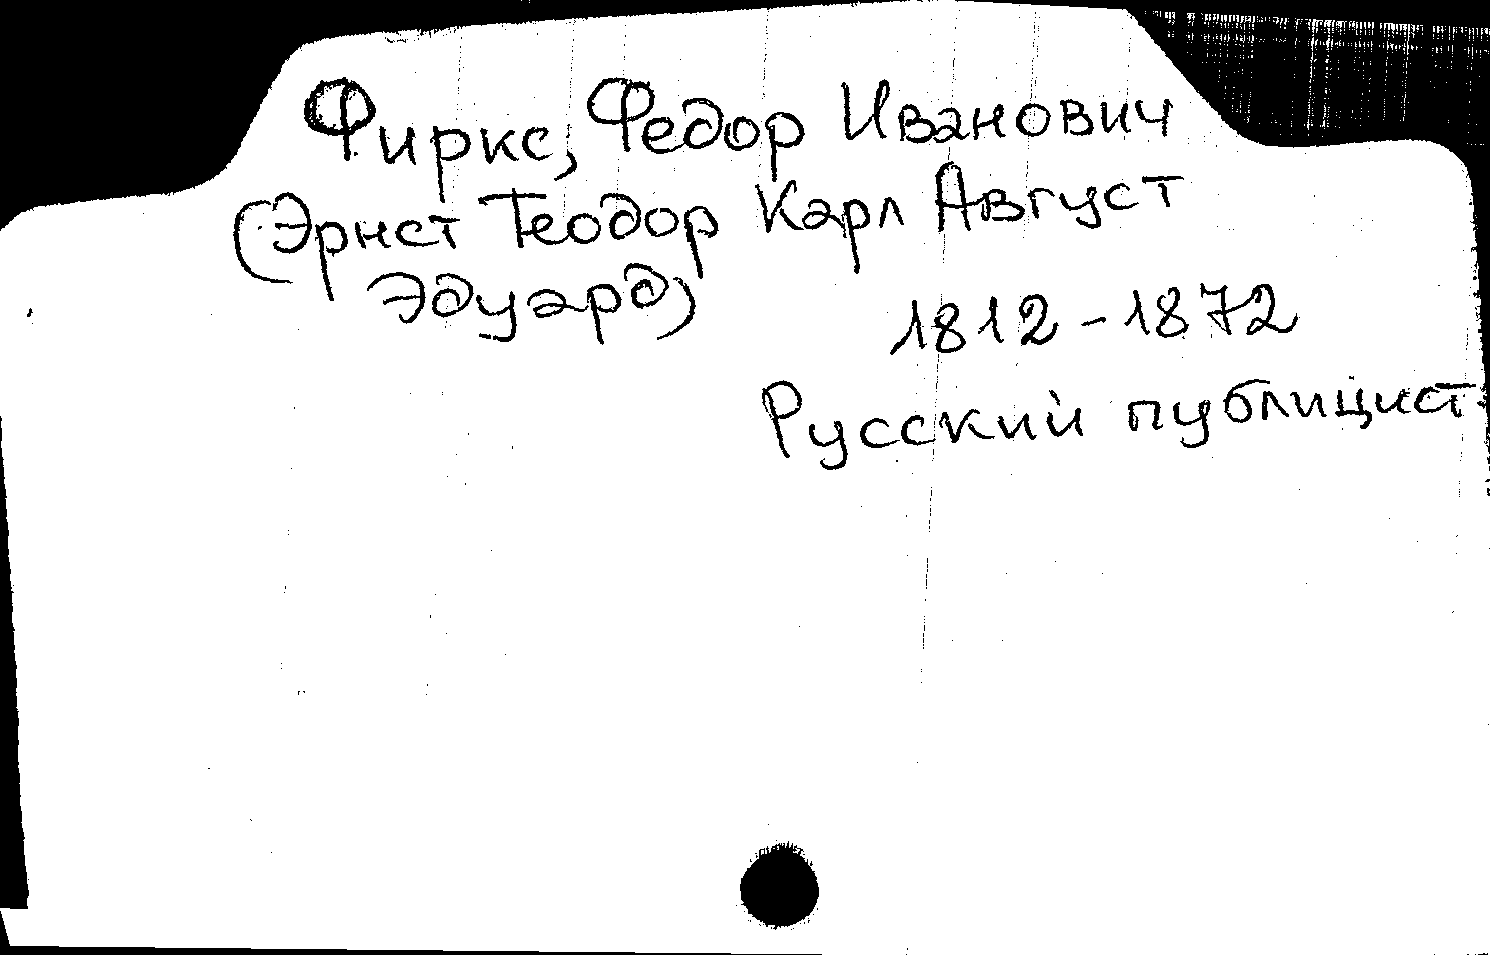 Фиркс, Федор Иванович
(Эрнст Теодор Карл Август
Эдуард)
1812-1872
Русский публицист